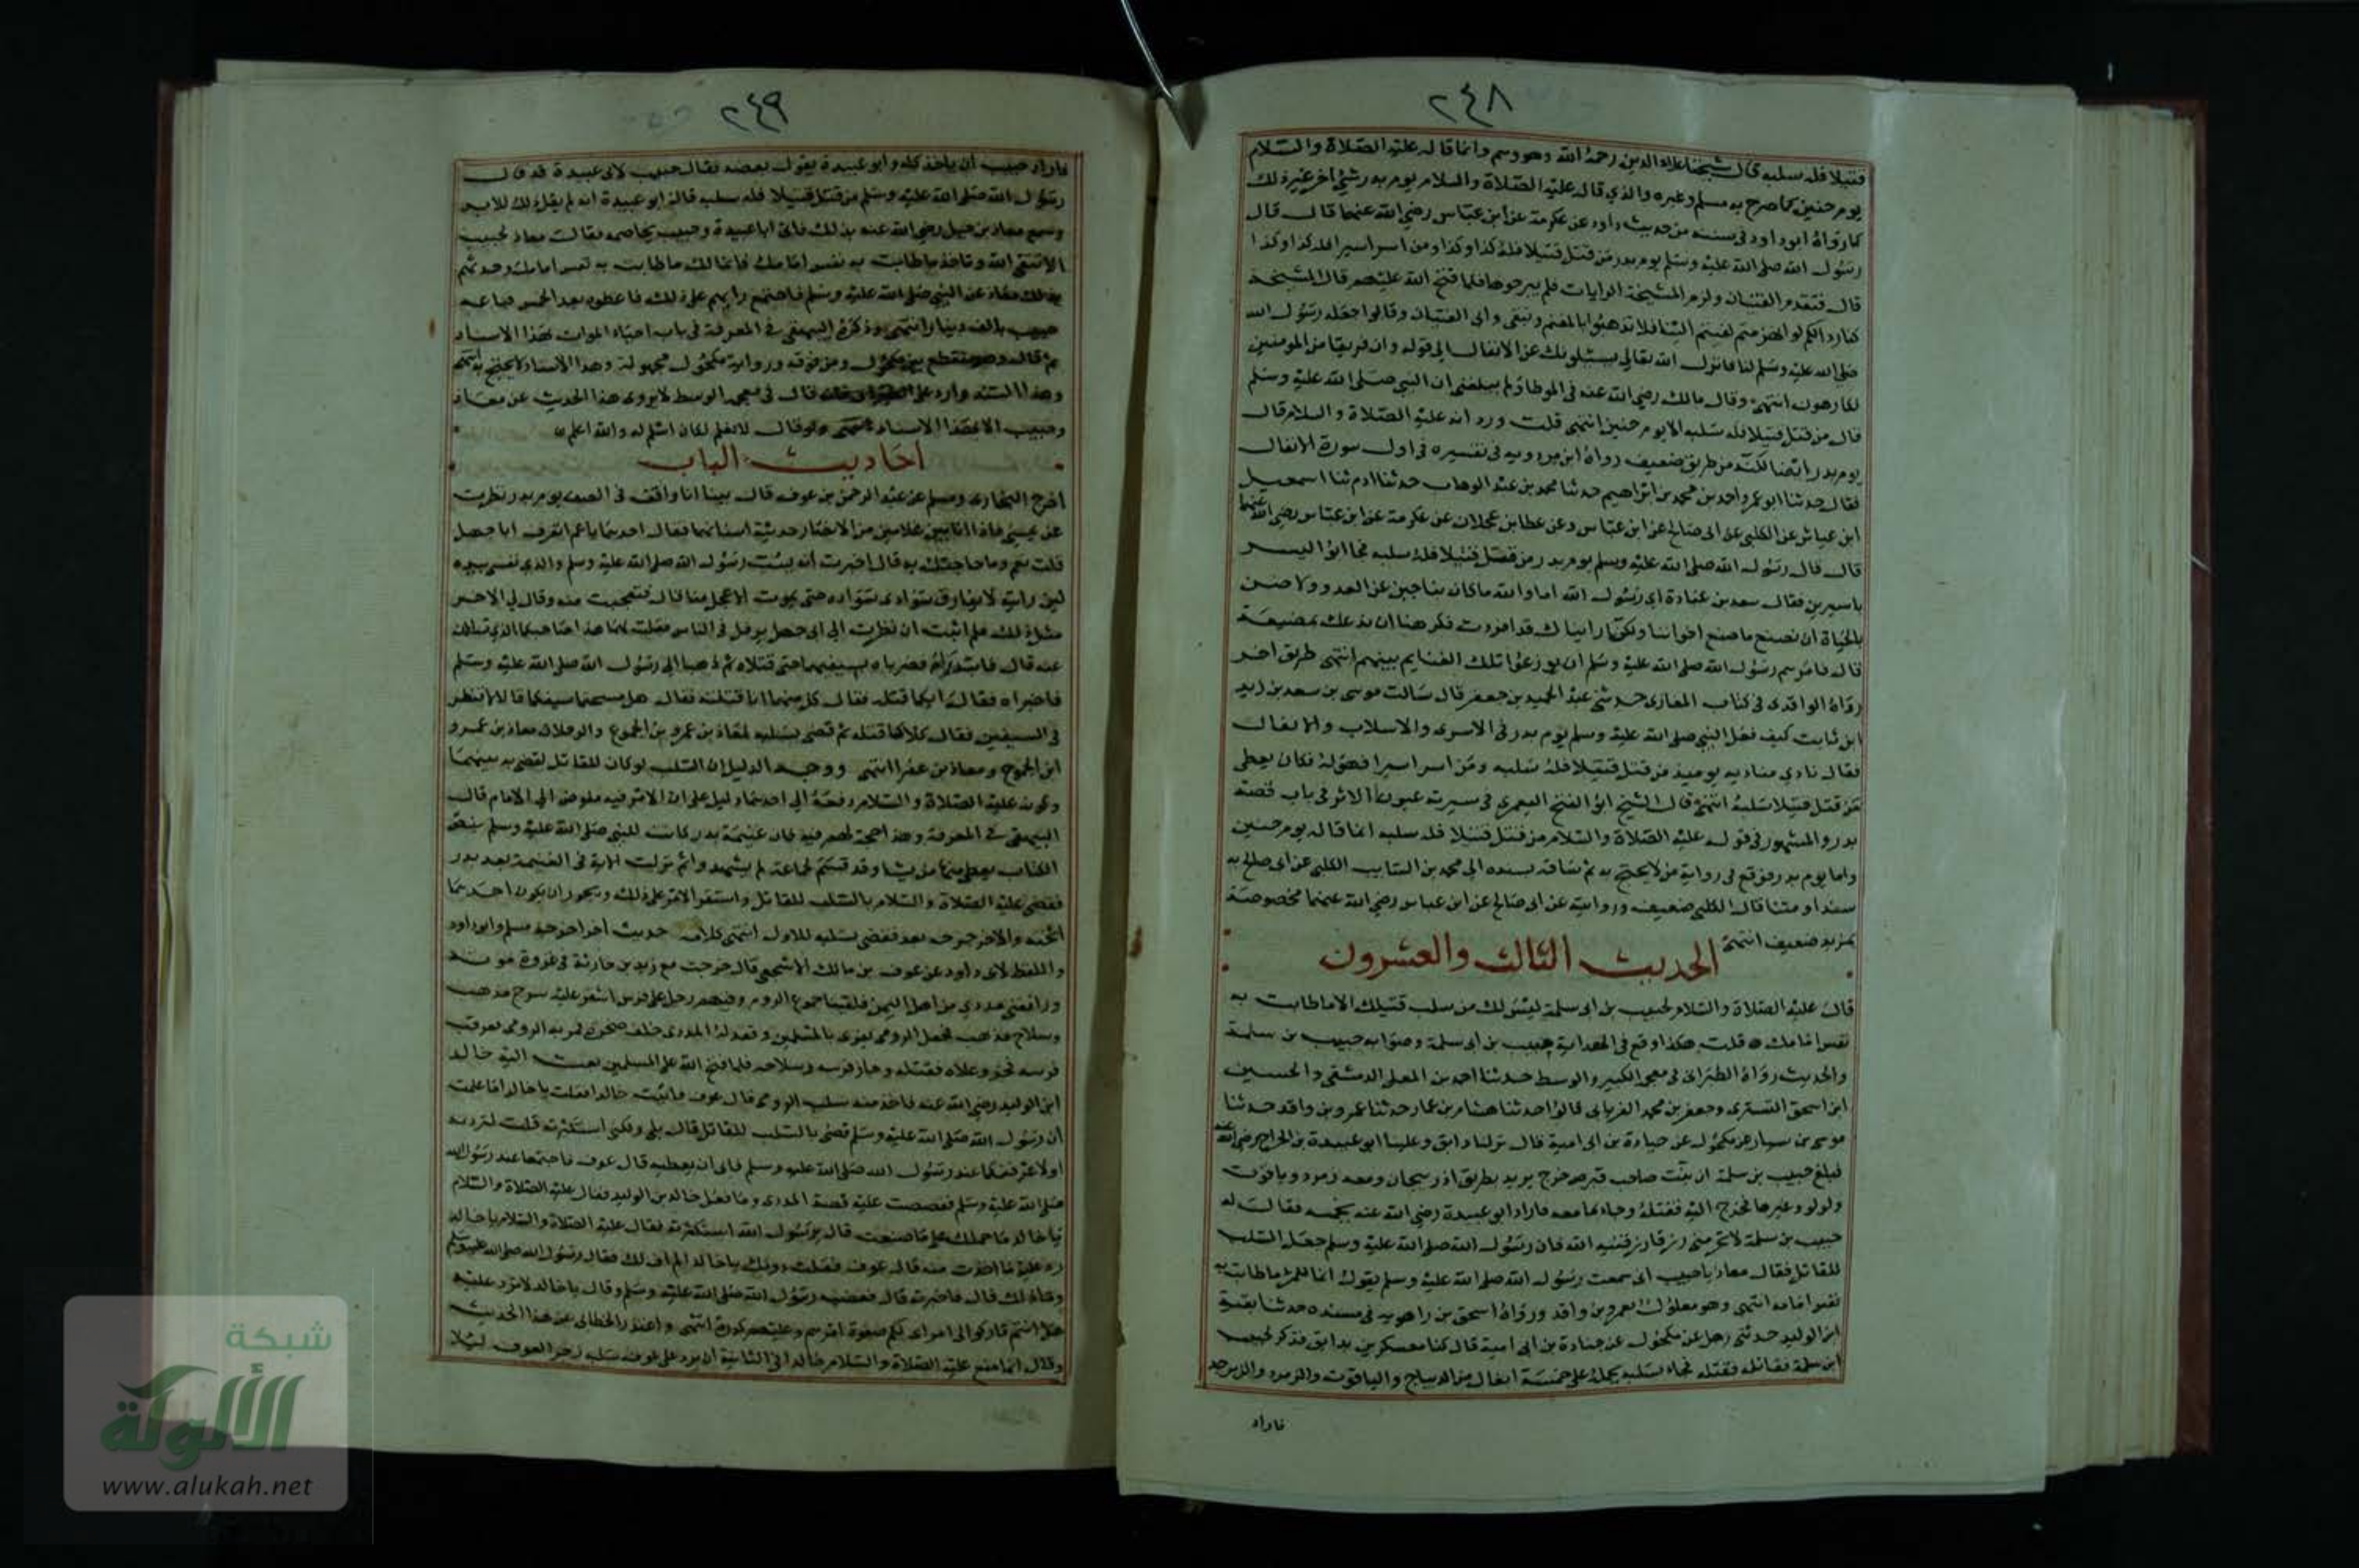 ٢٤٨
قتيلا فله سلبه قال شيخنا علاء الدين رحمه الله وهو وهم وانما قاله عليه الصلاة والسلام
يوم حنين كما صرح به مسلم وغيره والذي قاله عليه الصلاة والسلام يوم بدر شيئ اخر غير ذلك
كما رواه ابو داود في سننه من حديث داود عن عكرمة عن ابن عباس رضي الله عنهما قال قال
رسول الله صلى الله عليه وسلم يوم بدر من قتل قتيلا فله كذا وكذا ومن اسر اسيرا فله كذا وكذا
قال فتقدم الفتيان ولزم المشيخة الرايات فلم يبرحوها فلما فتح الله عليهم قال المشيخة
كنا ردا لكم لو انهزمتم لفئتم الينا فلا تذهبوا بالمغنم ونبقى وابى الفتيان وقالوا جعله رسول الله
صلى الله عليه وسلم لنا فانزل الله تعالى يسئلونك عن الانفال الى قوله وان فريقا من المومنين
لكارهون انتهى وقال مالك رضي الله عنه في الموطا ولم يبلغني ان النبي صلى الله عليه وسلم
قال من قتل قتيلا فله سلبه الا يوم حنين انتهى قلت ورد انه عليه الصلاة والسلام قال
يوم بدر ايضا لكنه من طريق ضعيف رواه ابن مردويه في تفسيره في اول سورة الانفال
فقال حدثنا ابو عمرو احمد بن محمد بن ابراهيم حدثنا محمد بن عبد الوهاب حدثنا ادم ثنا اسمعيل
ابن عياش عن الكلبي عن ابى صالح عن ابن عباس وعن عطا بن عجلان عن عكرمة عن ابن عباس رضي الله عنهما
قال قال رسول الله صلى الله عليه وسلم يوم بدر من قتل قتيلا فله سلبه فجا ابو اليسر
باسيرين فقال سعد بن عبادة اى رسول الله اما والله ما كان بنا جبن عن العدو ولا ضن
بالحياة ان نصنع ما صنع اخواننا ولكنا رايناك قد افردت فكرهنا ان ندعك بمضيعة
قال فامرهم رسول الله صلى الله عليه وسلم ان يوزعوا تلك الغنايم بينهم انتهى طريق اخر
رواه الواقدى في كتاب المغازى حدثني عبد الحميد بن جعفر قال سالت موسى بن سعد بن زيد
ابن ثابت كيف فعل النبي صلى الله عليه وسلم يوم بدر في الاسرى والاسلاب والانفال
فقال نادى مناديه يوميذ من قتل قتيلا فله سلبه ومن اسر اسيرا فهو له فكان يعطى
من قتل قتيلا سلبه انتهى وقال الشيخ ابو الفتح اليعمرى في سيرته عيون الاثر في باب قصة
بدر والمشهور في قوله عليه الصلاة والسلام من قتل قتيلا فله سلبه انما قاله يوم حنين
واما يوم بدر فوقع في رواية من لا يحتج به ثم ساقه بسنده الى محمد بن السايب الكلبي عن ابى صالح به
سندا ومتنا قال الكلبي ضعيف وروايته عن ابى صالح عن ابن عباس رضي الله عنهما مخصوصة
بمزيد ضعيف انتهى
الحديث الثالث والعشرون
قال عليه الصلاة والسلام لحبيب بن ابى سلمة ليس لك من سلب قتيلك الا ما طابت به
نفس امامك قلت هكذا وقع في الهداية حبيب بن ابى سلمة وصوابه حبيب بن سلمة
والحديث رواه الطبرانى في معجمه الكبير والوسط حدثنا احمد بن المعلى الدمشقى والحسين
ابن اسحق التسترى وجعفر بن محمد الفريابى قالوا حدثنا هشام بن عمار حدثنا عمرو بن واقد حدثنا
موسى بن سيار عن مكحول عن جنادة بن ابى امية قال نزلنا دابق وعلينا ابو عبيدة بن الجراح رضي الله عنه
فبلغ حبيب بن سلمة ان بنت صاحب قبرص خرج يريد بطريق اذربيجان ومعه زمرد وياقوت
ولولو وغيرها فخرج اليه فقتله وجاء بما معه فاراد ابو عبيدة رضي الله عنه يخمسه فقال له
حبيب بن سلمة لا تحرمنى رزقا رزقنيه الله فان رسول الله صلى الله عليه وسلم جعل السلب
للقاتل فقال معاذ يا حبيب انى سمعت رسول الله صلى الله عليه وسلم يقول انما للمرء ما طابت به
نفس امامه انتهى وهو معلول بعمرو بن واقد ورواه اسحق بن راهويه في مسنده حدثنا بقية
ابن الوليد حدثنى رجل عن مكحول عن جنادة بن ابى امية قال كنا معسكرين بدابق فذكر لحبيب
ابن سلمة فقاتله فقتله فجاء بسلبه يحمله على خمسة ابغال من الديباج والياقوت والزمرد والزبرجد
فاراد
٢٤٩
فاراد حبيب ان ياخذ كله وابو عبيدة يقول بعضه فقال حبيب لابى عبيدة قد قال
رسول الله صلى الله عليه وسلم من قتل قتيلا فله سلبه قال ابو عبيدة انه لم يقل ذلك للابد
وسمع معاذ بن جبل رضي الله عنه بذلك فاتى ابا عبيدة وحبيب يخاصمه فقال معاذ لحبيب
الا تتقى الله وتاخذ ما طابت به نفس امامك فانما لك ما طابت به نفس امامك وحدثهم
بذلك معاذ عن النبي صلى الله عليه وسلم فاجتمع رايهم على ذلك فاعطوه بعد الخمس فباعه
حبيب بالف دينار انتهى وذكره البيهقى في المعرفة في باب احياء الموات بهذا الاسناد
ثم قال وهو منقطع بين مكحول ومن فوقه ورواية مكحول مجهولة وهذا الاسناد لا يحتج به انتهى
وهذا السند وارد على الطبرانى فانه قال في معجمه الوسط لا يروى هذا الحديث عن معاذ
وحبيب الا بهذا الاسناد انتهى ولو قال لا نعلم لكان اسلم له والله اعلم
احاديث الباب
اخرج البخارى ومسلم عن عبد الرحمن بن عوف قال بينا انا واقف في الصف يوم بدر نظرت
عن يمينى فاذا انا بين غلامين من الانصار حديثة اسنانهما فقال احدهما يا عم اتعرف ابا جهل
قلت نعم وما حاجتك به قال اخبرت انه يسب رسول الله صلى الله عليه وسلم والذى نفسى بيده
لين رايته لا يفارق سوادى سواده حتى يموت الاعجل منا قال فتعجبت منه وقال لي الاخر
مثل ذلك فلم انشب ان نظرت الى ابى جهل يرفل في الناس فقلت لهما هذا صاحبكما الذى تسالان
عنه قال فابتدراه فضرباه بسيفيهما حتى قتلاه ثم ذهبا الى رسول الله صلى الله عليه وسلم
فاخبراه فقال ايكما قتله فقال كل منهما انا قتلته فقال هل مسحتما سيفيكما قالا لا فنظر
في السيفين فقال كلاكما قتله ثم قضى بسلبه لمعاذ بن عمرو بن الجموع والرجلان معاذ بن عمرو
ابن الجموح ومعاذ بن عفرا انتهى ووجه الدليل ان السلب لو كان للقاتل لقضى به بينهما
وكونه عليه الصلاة والسلام دفعه الى احدهما دليل على ان الامر فيه مفوض الى الامام قال
البيهقى في المعرفة وهذا لا حجة لهم فيه فان غنيمة بدر كانت للنبي صلى الله عليه وسلم بنص
الكتاب يعطى منها من يشا وقد قسم لجماعة لم يشهدوا ثم نزلت الاية في الغنيمة بعد بدر
فقضى عليه الصلاة والسلام بالسلب للقاتل واستقر الامر على ذلك ويجوز ان يكون احدهما
اثخنه والاخر جرحه بعد فقضى بسلبه للاول انتهى كلامه حديث اخر اخرجه مسلم وابو داود
واللفظ لابى داود عن عوف بن مالك الاشجعى قال خرجت مع زيد بن حارثة في غزوة موتة
ورافقنى مددى من اهل اليمن فلقينا جموع الروم وفيهم رجل على فرس اشقر عليه سرج مذهب
وسلاح مذهب فجعل الرومى يغرى بالمسلمين وقعد له المددى خلف صخرة فمر به الرومى فعرقب
فرسه فخر وعلاه فقتله وحاز فرسه وسلاحه فلما فتح الله على المسلمين بعث اليه خالد
ابن الوليد رضي الله عنه فاخذ منه سلب الرومى قال عوف فاتيت خالدا فقلت يا خالد اما علمت
ان رسول الله صلى الله عليه وسلم قضى بالسلب للقاتل قال بلى ولكنى استكثرته قلت لتردنه
اولا عرفنكها عند رسول الله صلى الله عليه وسلم فابى ان يعطيه قال عوف فاجتمعا عند رسول الله
صلى الله عليه وسلم فقصصت عليه قصة المددى وما فعل خالد بن الوليد فقال عليه الصلاة والسلام
يا خالد ما حملك على ما صنعت قال يرسول الله استكثرته فقال عليه الصلاة والسلام يا خالد
رد عليه ما اخذت منه قال عوف فقلت دونك يا خالد الم اف لك فقال رسول الله صلى الله عليه وسلم
وما ذلك قال فاخبرته قال فغضب رسول الله صلى الله عليه وسلم وقال يا خالد لا ترد عليه
هل انتم تاركوا لى امراى لكم صفوة امرهم وعليهم كدره انتهى واعتذر الخطابى عن هذا الحديث
وقال انما منع عليه الصلاة والسلام خالدا في الثانية ان يرد على عوف سلبه زجرا لعوف ليلا
شبكة
الألوكة
www.alukah.net